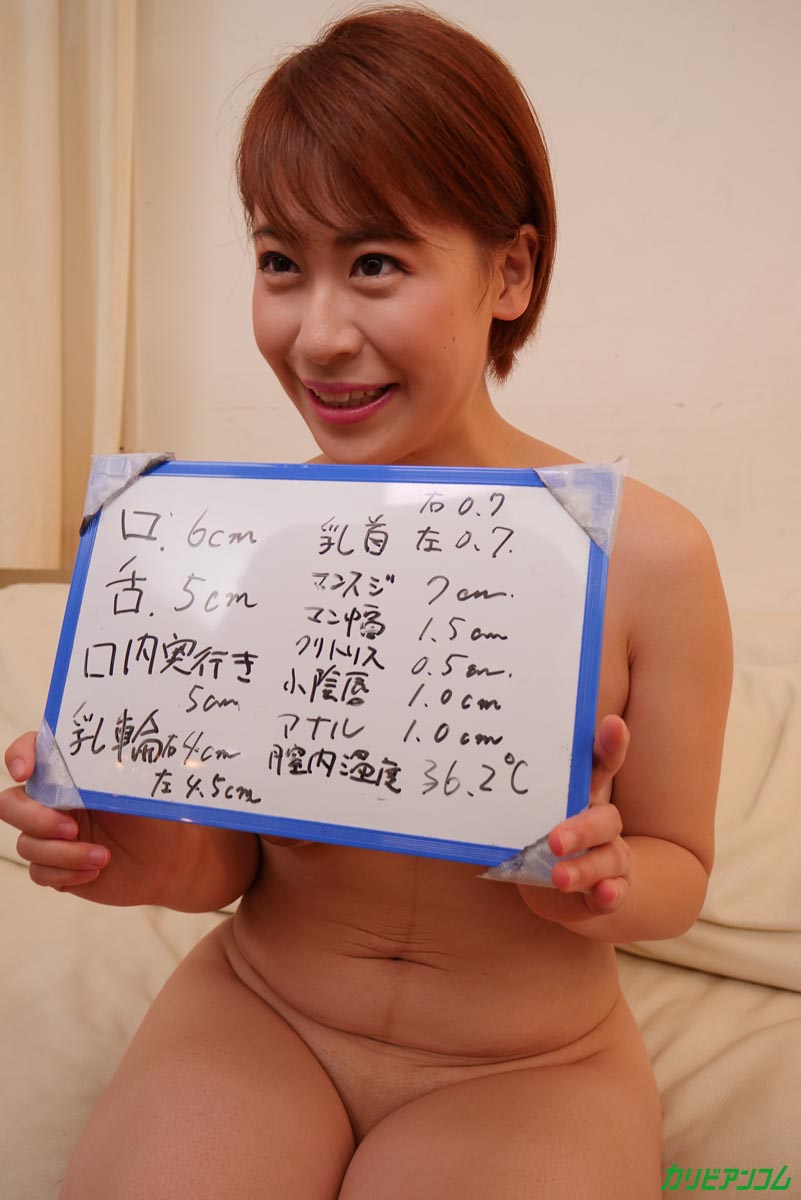 口. 6cm
舌. 5cm
口内奥行き
5cm
乳輪右4cm
左4.5cm
右0.7
乳首 左0.7.
マンスジ 7cm.
マン幅 1.5cm
クリトリス 0.5cm.
小陰唇 1.0cm
アナル 1.0cm
膣内温度 36.2℃
カリビアンコム